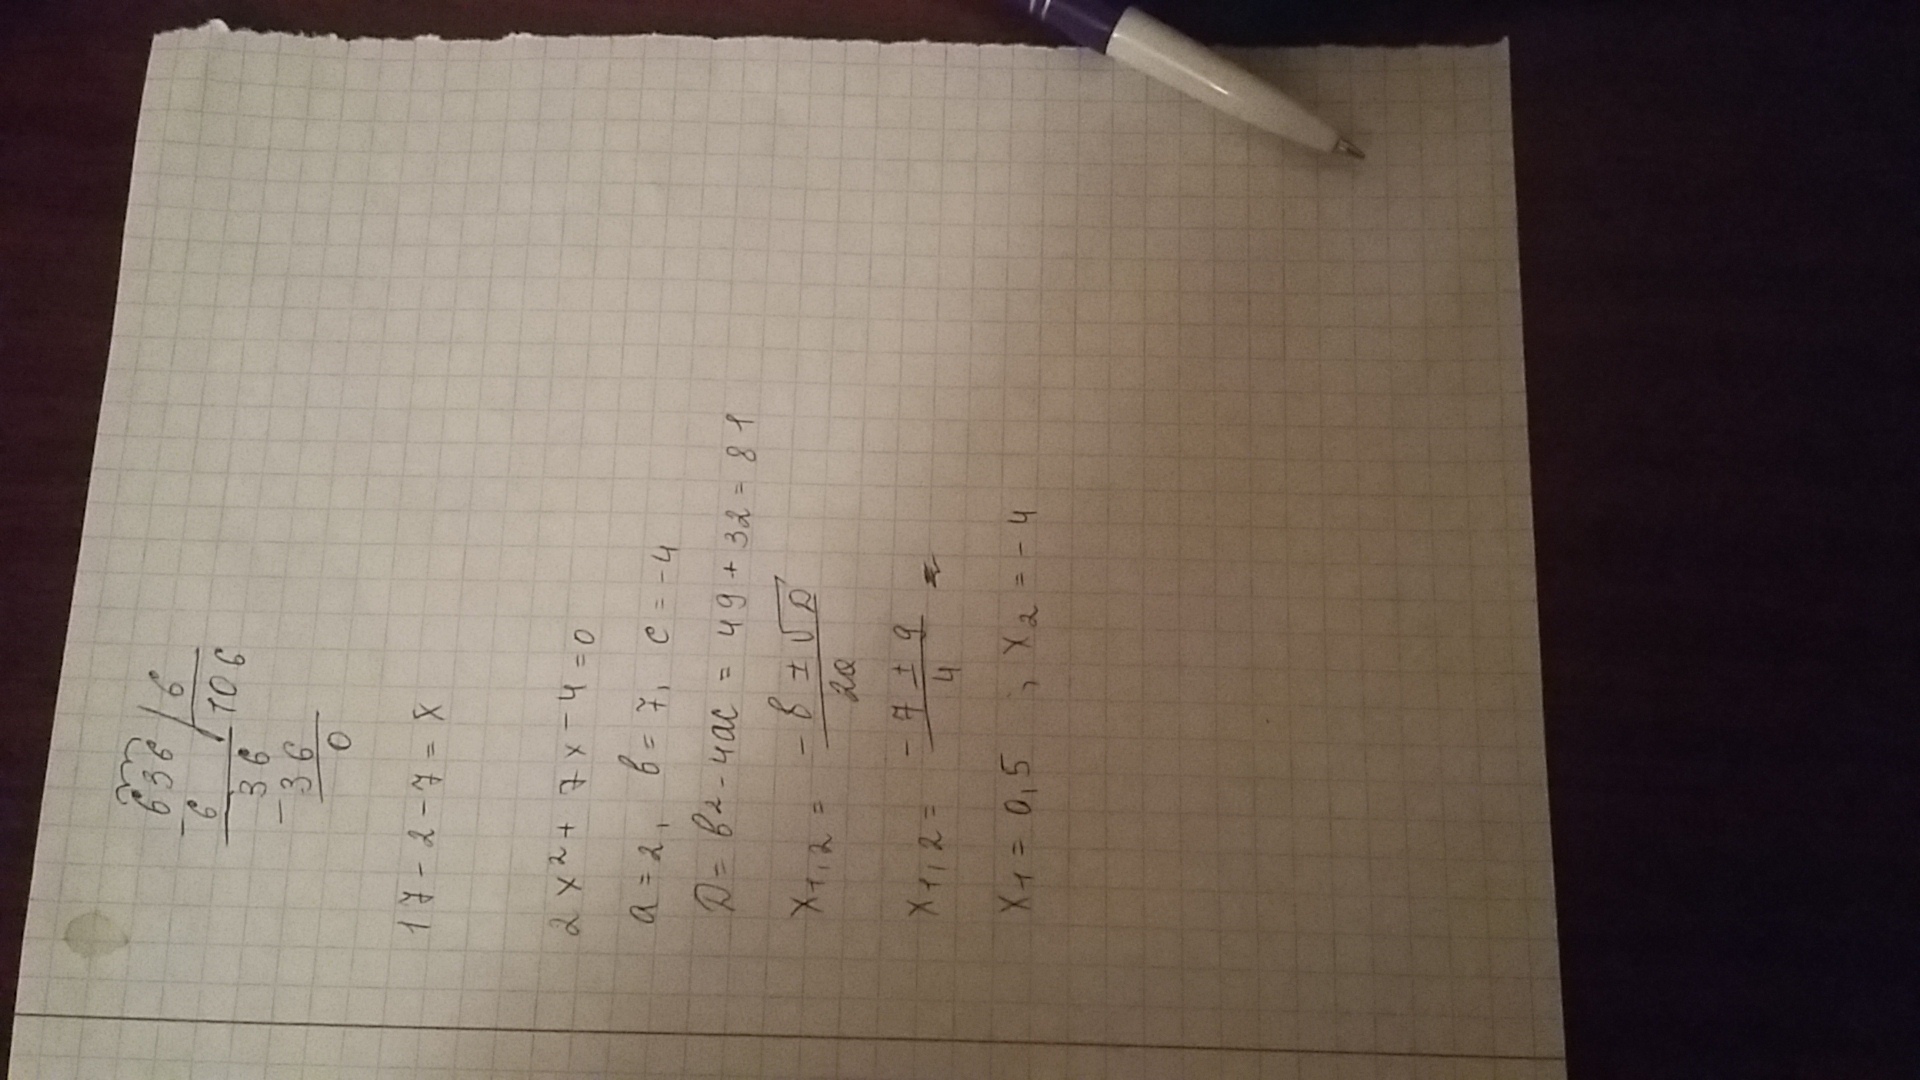 636 / 6
- 6 106
36
- 36
0
17 - 2 - 7 = x
2x² + 7x - 4 = 0
a = 2, в = 7, c = -4
D = в² - 4ac = 49 + 32 = 81
x₁,₂ = (-в ± √D) / 2a
x₁,₂ = (-7 ± 9) / 4
x₁ = 0,5 , x₂ = -4